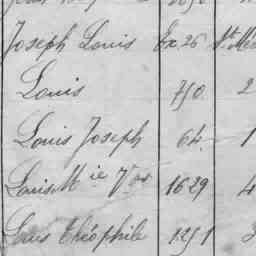 Joseph Louis Ex. 26 St. Mé
Louis 750. 2
Louis Joseph 64. 1
Louis M ie Vor 1629 4
Louis théophile 1251